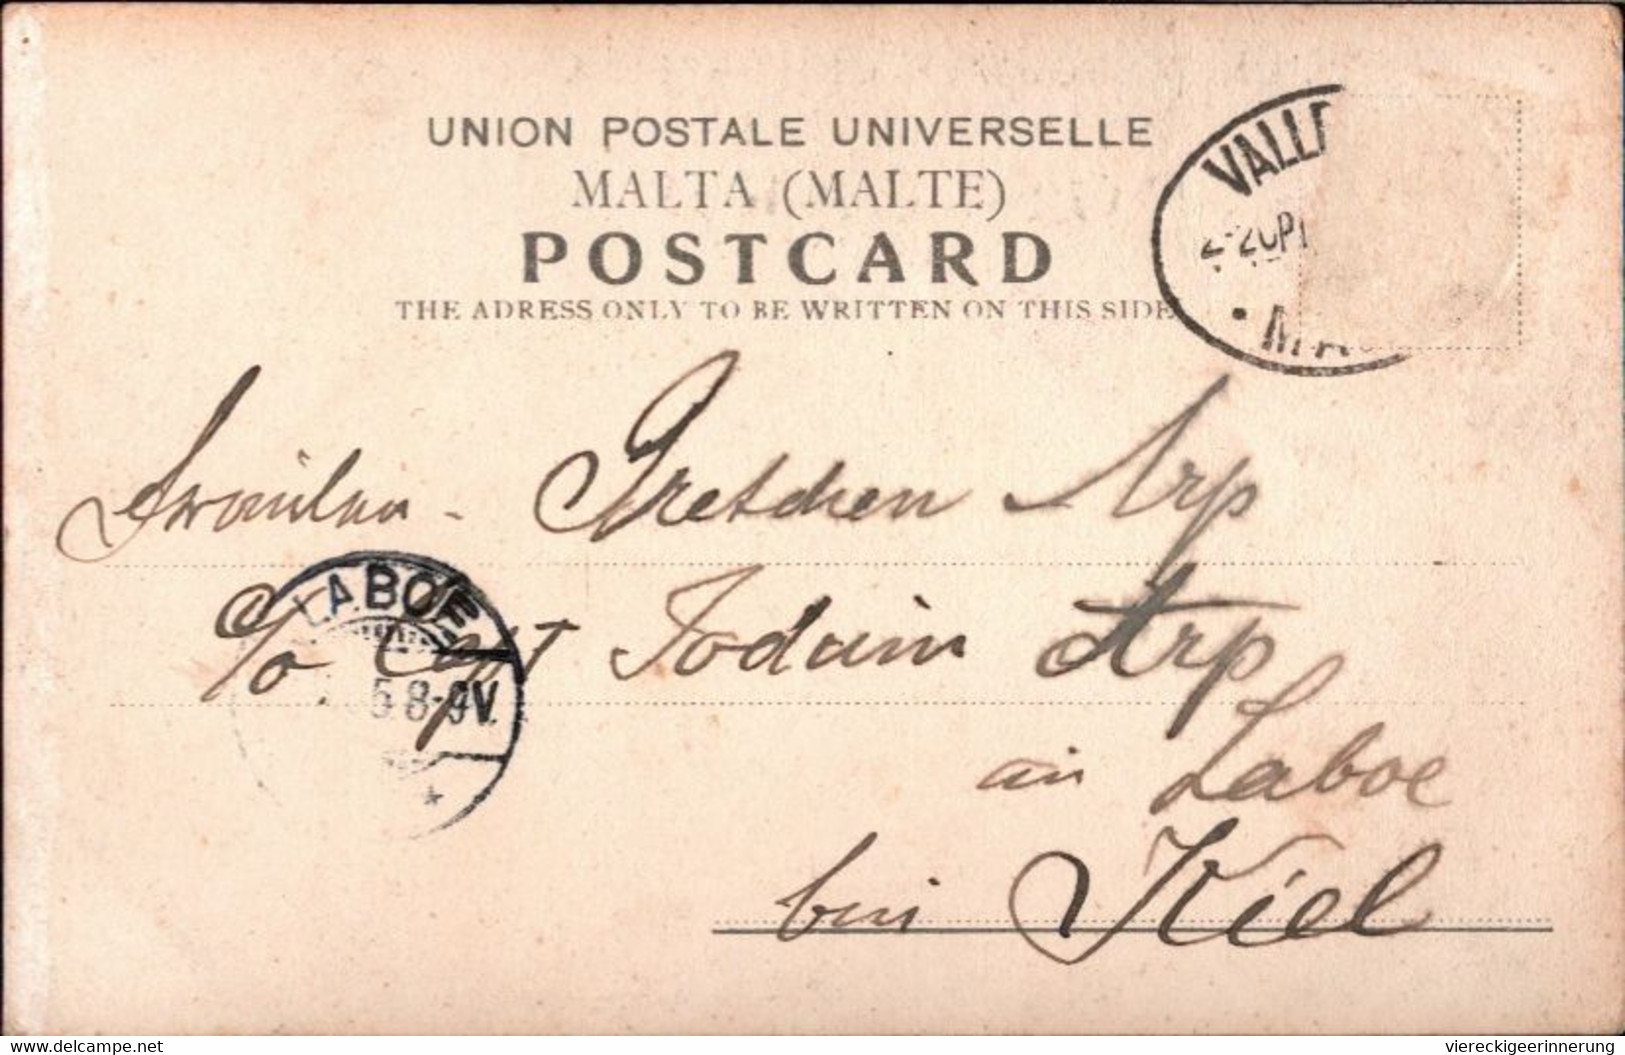 UNION POSTALE UNIVERSELLE
MALTA (MALTE)
POSTCARD
THE ADRESS ONLY TO BE WRITTEN ON THIS SIDE
VALLE
Fräulein - Gretchen Arp
LABOE
c/o Capt Arp
5 8-9V.
in Laboe
bei Kiel
delcampe.net
viereckigeerinnerung